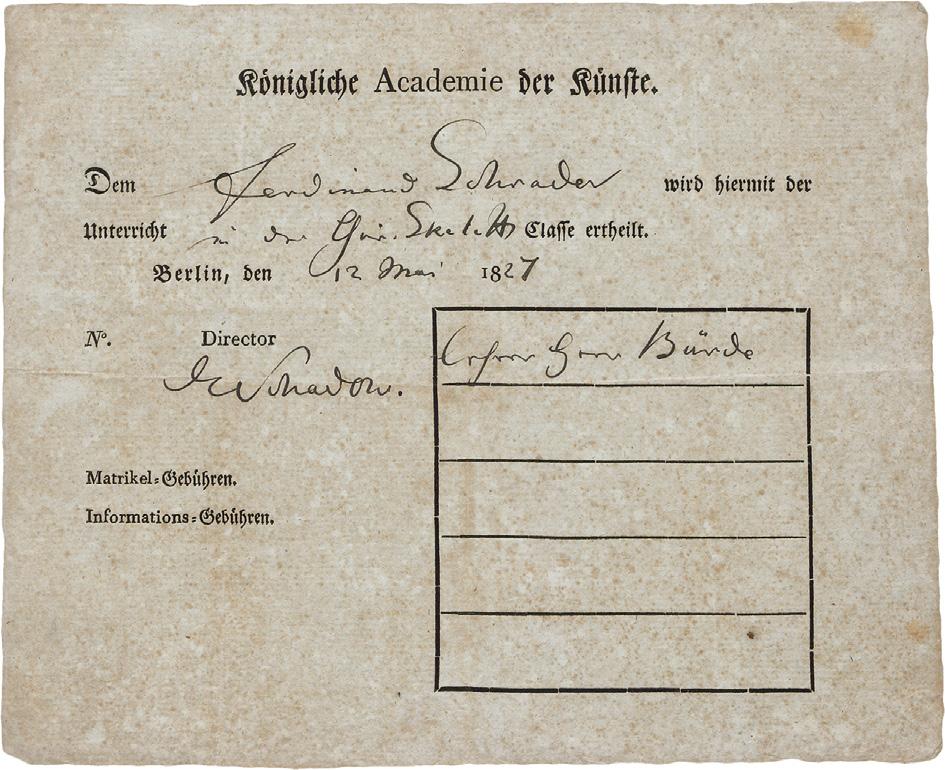 Königliche Academie der Künste.
Dem Ferdinand Schrader wird hiermit der
Unterricht in der Skelett Classe ertheilt.
Berlin, den 12 Mai 1827
Nº. Director
Schadow.
Lehrer Herr Bürde
Matrikel=Gebühren.
Informations=Gebühren.